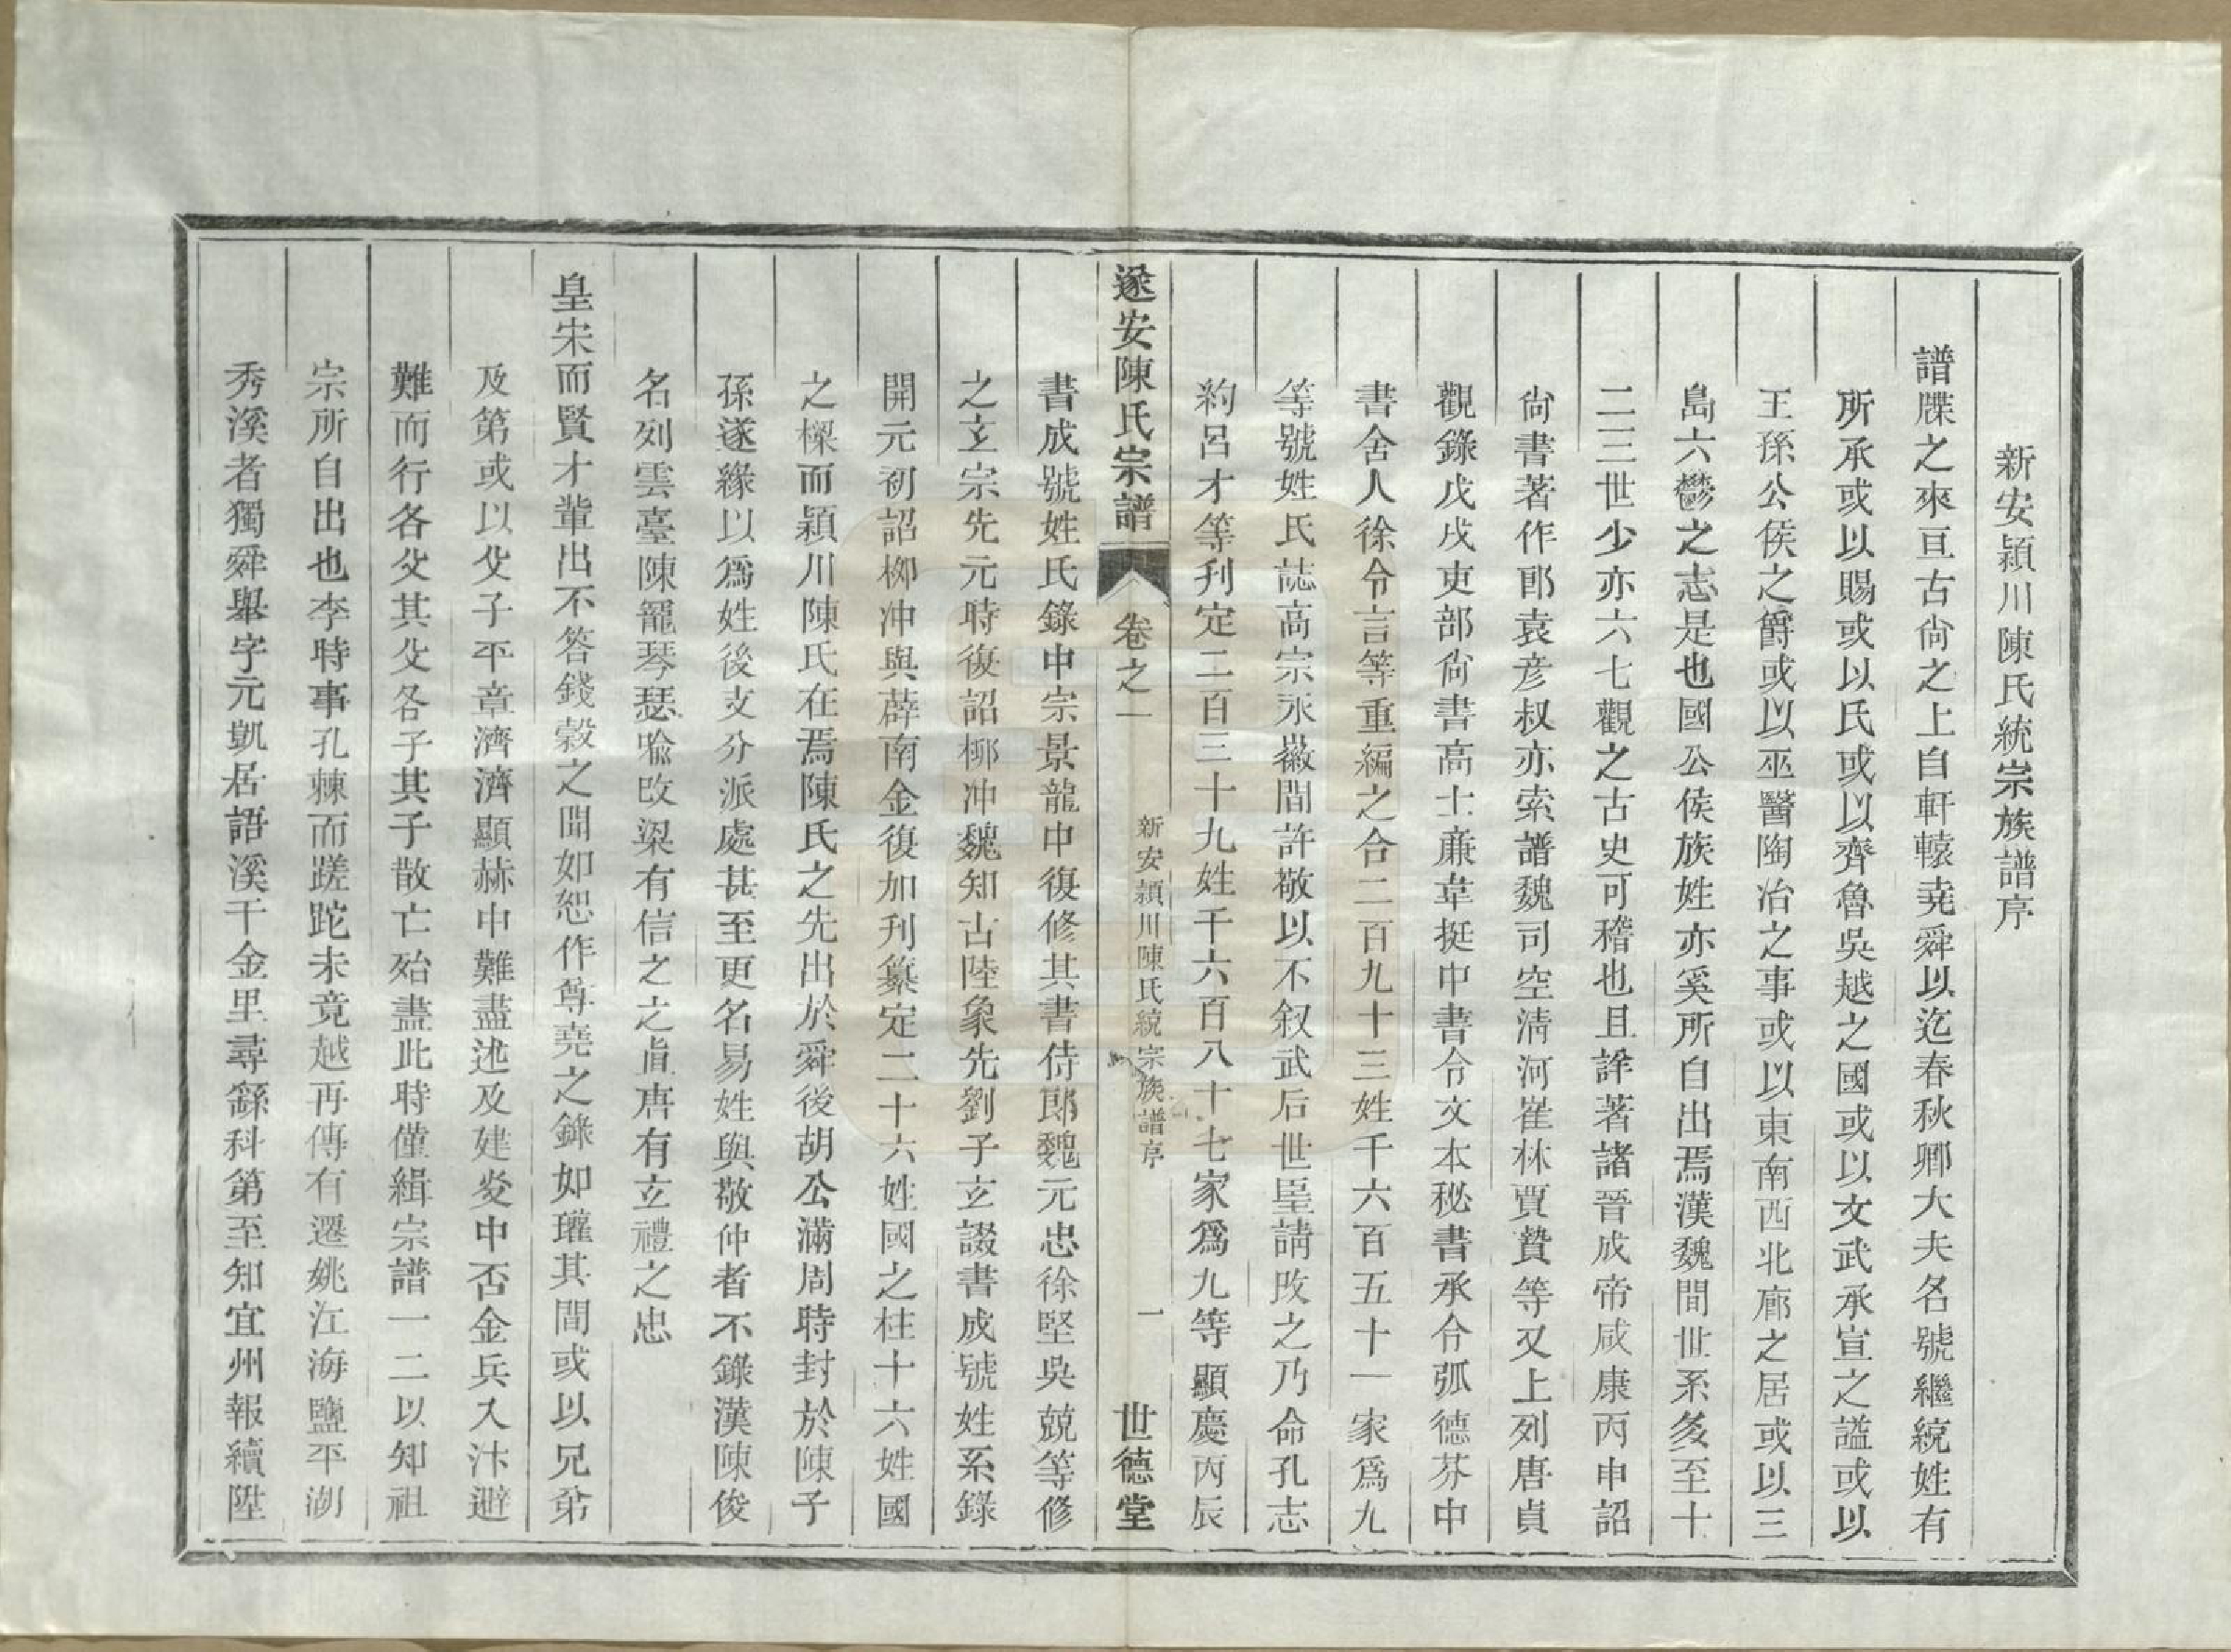 新安潁川陳氏統宗族譜序
譜牒之來亘古尙之上自軒轅堯舜以迄春秋卿大夫名號繼統姓有
所承或以賜或以氏或以齊魯吳越之國或以文武承宣之謚或以
王孫公侯之爵或以巫醫陶冶之事或以東南西北廊之居或以三
島六鬱之志是也國公侯族姓亦奚所自出焉漢魏間世系多至十
二三世少亦六七觀之古史可稽也且詳著諸晉成帝咸康丙申詔
尙書著作郎袁彦叔亦索譜魏司空淸河崔林賈贄等又上列唐貞
觀錄戊戌吏部尙書高士亷韋挺中書令文本秘書承令弧德芬中
書舍人徐令言等重編之合二百九十三姓千六百五十一家爲九
等號姓氏誌高宗永徽間許敬以不叙武后世臣請改之乃命孔志
約呂才等刋定二百三十九姓千六百八十七家爲九等顯慶丙辰
遂安陳氏宗譜
卷之一
新安潁川陳氏統宗族譜序
一
世德堂
書成號姓氏錄中宗景龍中復修其書侍郎魏元忠徐堅吳兢等修
之玄宗先元時復詔栁冲魏知古陸象先劉子玄諁書成號姓系錄
開元初詔栁冲與薛南金復加刋纂定二十六姓國之柱十六姓國
之樑而潁川陳氏在焉陳氏之先出於舜後胡公滿周時封於陳子
孫遂緣以爲姓後支分派處甚至更名易姓與敬仲者不錄漢陳俊
名列雲臺陳寵琴瑟喩改梁有信之之貞唐有立禮之忠
皇宋而賢才輩出不答錢穀之聞如恕作尊堯之錄如瓘其間或以兄弟
及第或以父子平章濟濟顯赫中難盡述及建炎中否金兵入汴避
難而行各父其父各子其子散亡殆盡此時僅緝宗譜一二以知祖
宗所自出也李時事孔棘而蹉跎未竟越再傳有遷姚江海鹽平湖
秀溪者獨舜舉字元凱居語溪干金里尋繇科第至知宜州報續陞